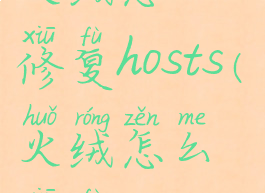 xiū fù
修复hosts(
huǒ róng zěn me
火绒怎么